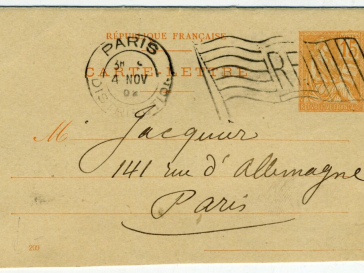 RÉPUBLIQUE FRANÇAISE
CARTE-LETTRE
PARIS
4 NOV
M. Jacquier
141 rue d'Allemagne
Paris